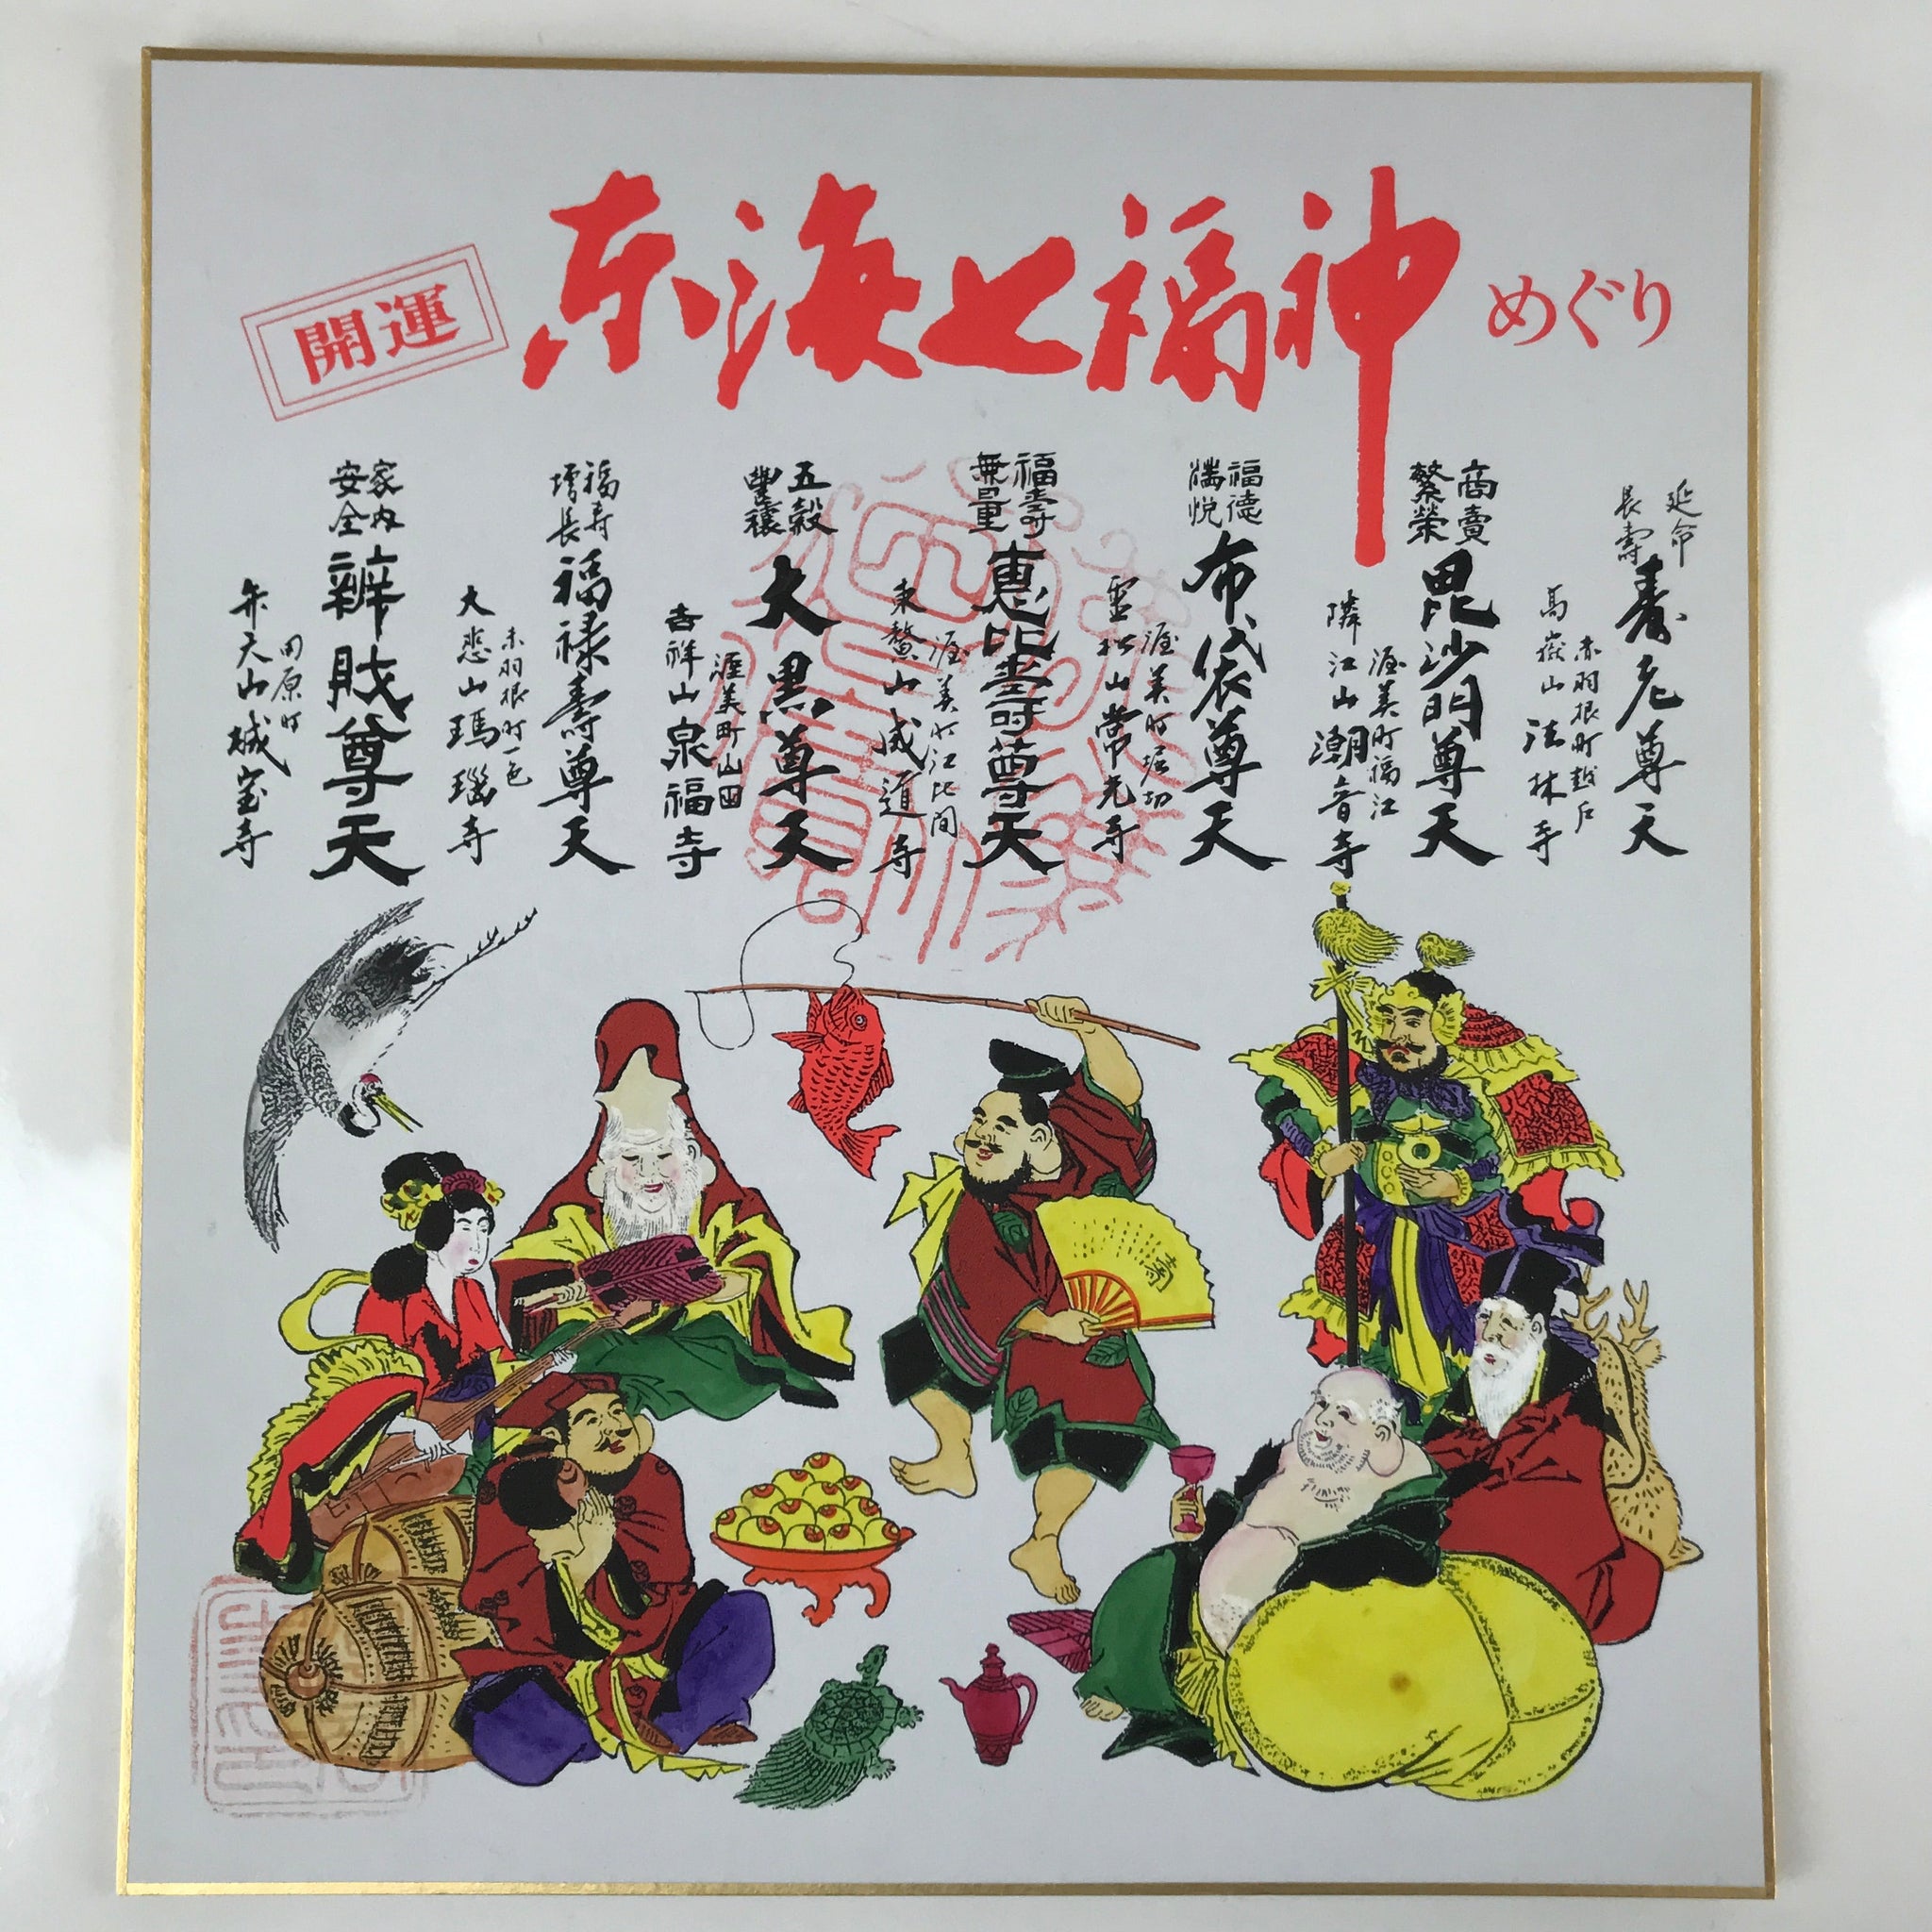 開運
東海七福神
めぐり
延命
長壽
壽老尊天
赤羽根町越戸
高嶽山法林寺
商賣
繁榮
毘沙門尊天
渥美町福江
隣江山潮音寺
福徳
布袋尊天
渥美町堀切
霊松山常光寺
福壽
無量
恵比壽尊天
渥美町江比間
東鰲山成道寺
五穀
豊穣
大黒尊天
渥美町山田
吉祥山泉福寺
福寿
増長
福禄壽尊天
赤羽根町一色
大悲山瑪瑙寺
家内
安全
辨財尊天
田原町
弁天山城宝寺
壽